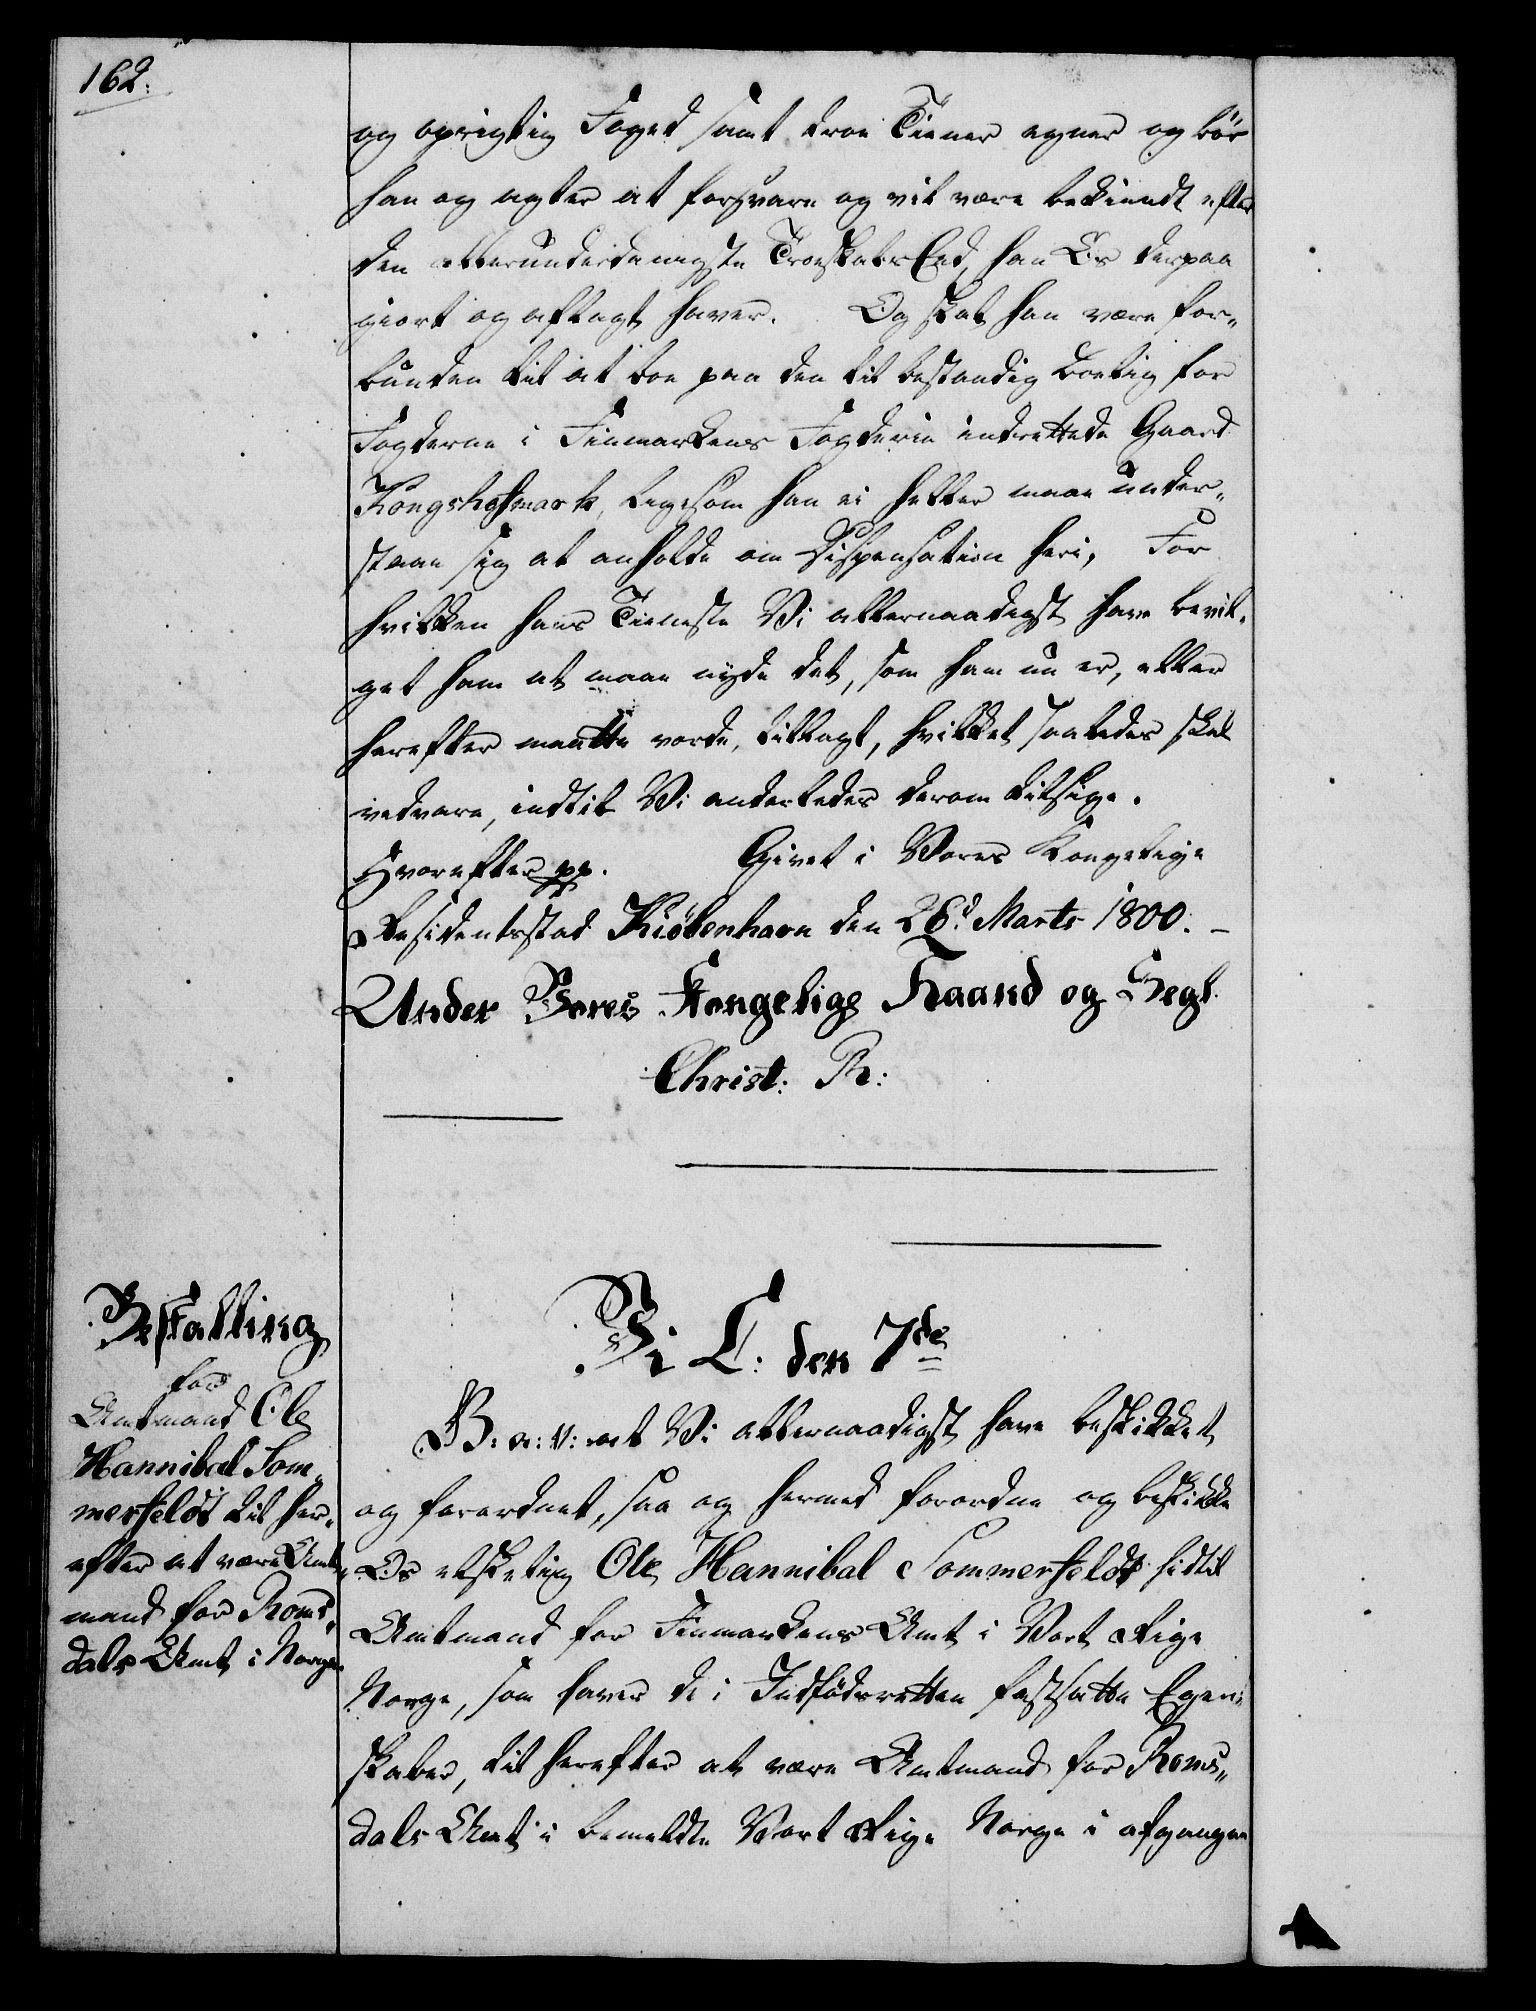 162.
og oprigtig Foged samt troe Tiener egner og bör
han og agter at forsvare og vil være bekiendt efter
den allerunderdanigste Troeskabs Eed, han Os derpaa
giort og aflagt haver. Og skal han være for„
bunden til at boe paa den til bestandig Boelig for
Fogderne i Finmarkens Fogderie indrettede Gaard
Kongshofmark, ligesom han ei heller maae under„
staae sig at anholde om Dispensation heri, For
hvilken hans Tieneste Vi allernaadigst have bevil„
get ham at maae nyde det, som ham nu er, eller
herefter maatte vorde, tillagt, hvilket saaledes skal
vedvare, indtil Vi anderledes derom tilsige.
Hvorefter pp. Givet i Vores Kongelige
Residentsstad Kiöbenhavn den 26d. Marts 1800. –
Under Vores Kongelige Haand og Segl.
Christ: R:
Bestalling
for
Amtmand Ole
Hannibal Som„
merfeldt til her„
efter at være Amt„
mand for Roms„
dals Amt i Norge.
Vi C: den 7de
G. A: V: at Vi allernaadigst have beskikket
og forordnet, saa og hermed forordne og beskikke
Os elskelig Ole Hannibal Sommerfeldt hidtil
Amtmand for Finmarkens Amt i Vort Rige
Norge, som haver de i Indfödsretten fastsatte Egen„
skaber, til herefter at være Amtmand for Roms„
dals Amt i bemeldte Vort Rige Norge i afgangne